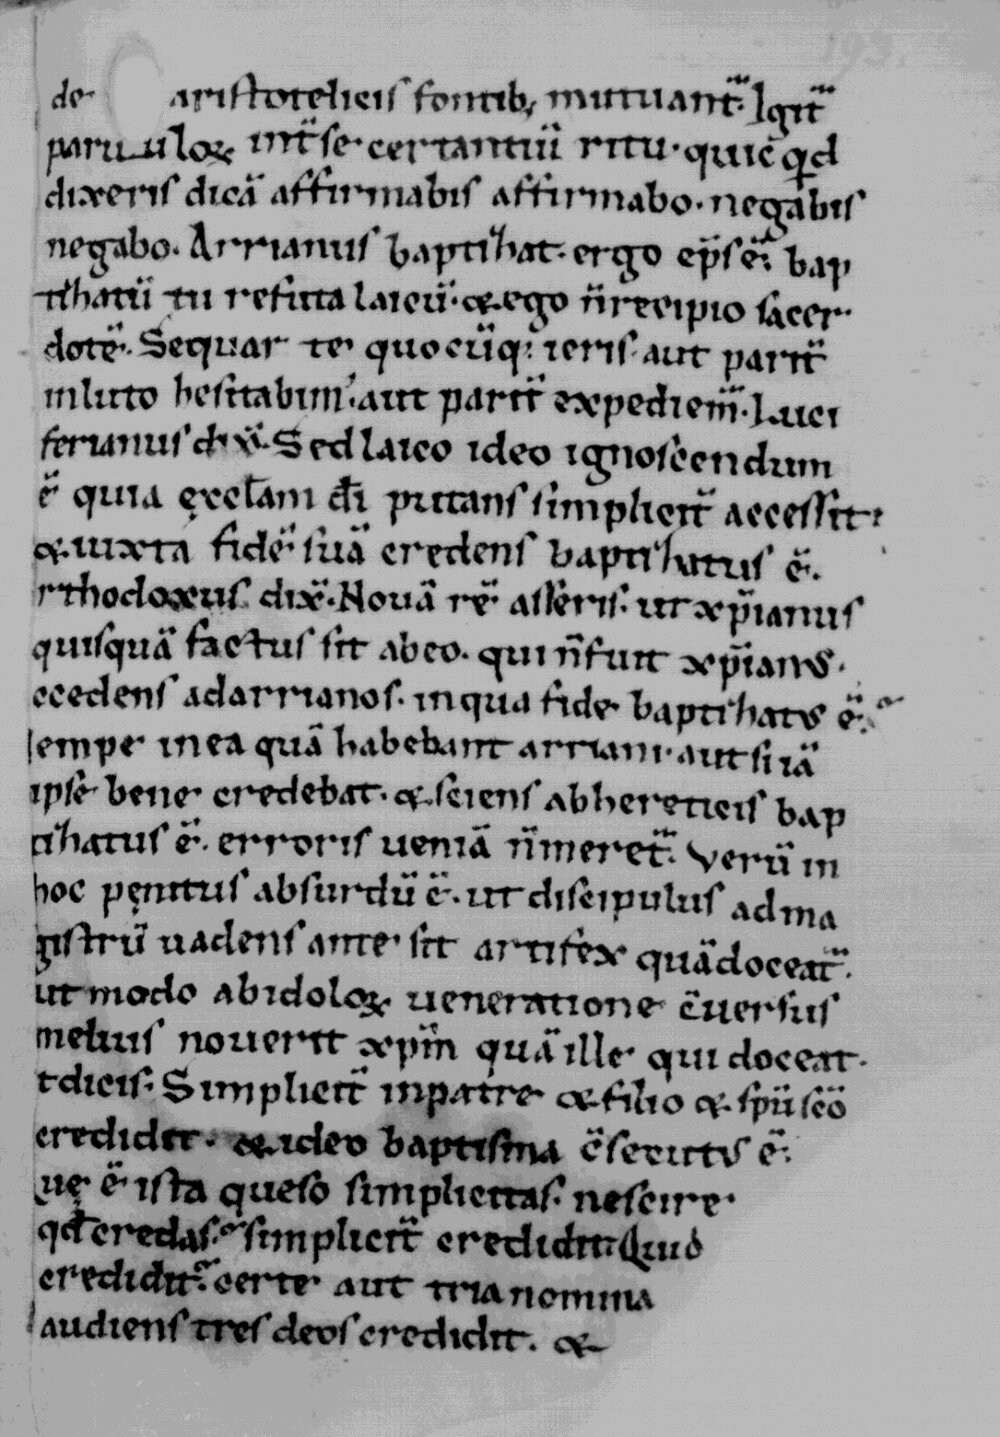 193.
de aristotelicis fontib; mutuant̃. Igit̃
paruuloꝝ int̃ se certantiũ ritu. quicqd
dixeris dicã affirmabis affirmabo. negabis
negabo. Arrianus baptizat. ergo ep̃s ẽ. bap
tizatũ tu refuta laicũ. & ego ñ recipio sacer
dotẽ. Sequar te quocũq; ieris. aut parit̃
inluto hesitabim᾽. aut parit̃ expediem̃. Luci
ferianus dix̃. Sed laico ideo ignoscendum
ẽ quia ęcct̃am di putans simplicit̃ accessit.
& iuxta fidẽ suã credens baptizatus ẽ.
rthodoxus dix̃. Nouã rẽ asseris. ut xp̃ianus
quisquã factus sit abeo. qui ñ fuit xp̃ianus.
ccedens adarrianos. inqua fide baptizatus ẽ.
sempe inea quã habebant arriani. aut si iã
ipse bene credebat. & sciens abhereticis bap
tizatus ẽ. erroris ueniã ñ meret̃. Verũ in
hoc pęnitus absurdũ ẽ. ut discipulus adma
gistrũ uadens ante sit artifex quã doceat̃.
ut modo abidoloꝝ ueneratione c̃uersus
melius nouerit xp̃m quã ille qui doceat.
t dicis. Simplicit̃ inpatre & filio & sp̃u sc̃o
credidit. & ideo baptisma c̃secutus ẽ.
uę ẽ ista queso simplicitas. nescire
qđ credas. simplicit̃ credidit. Quid
credidit. certe aut tria nomina
audiens tres deos credidit. &